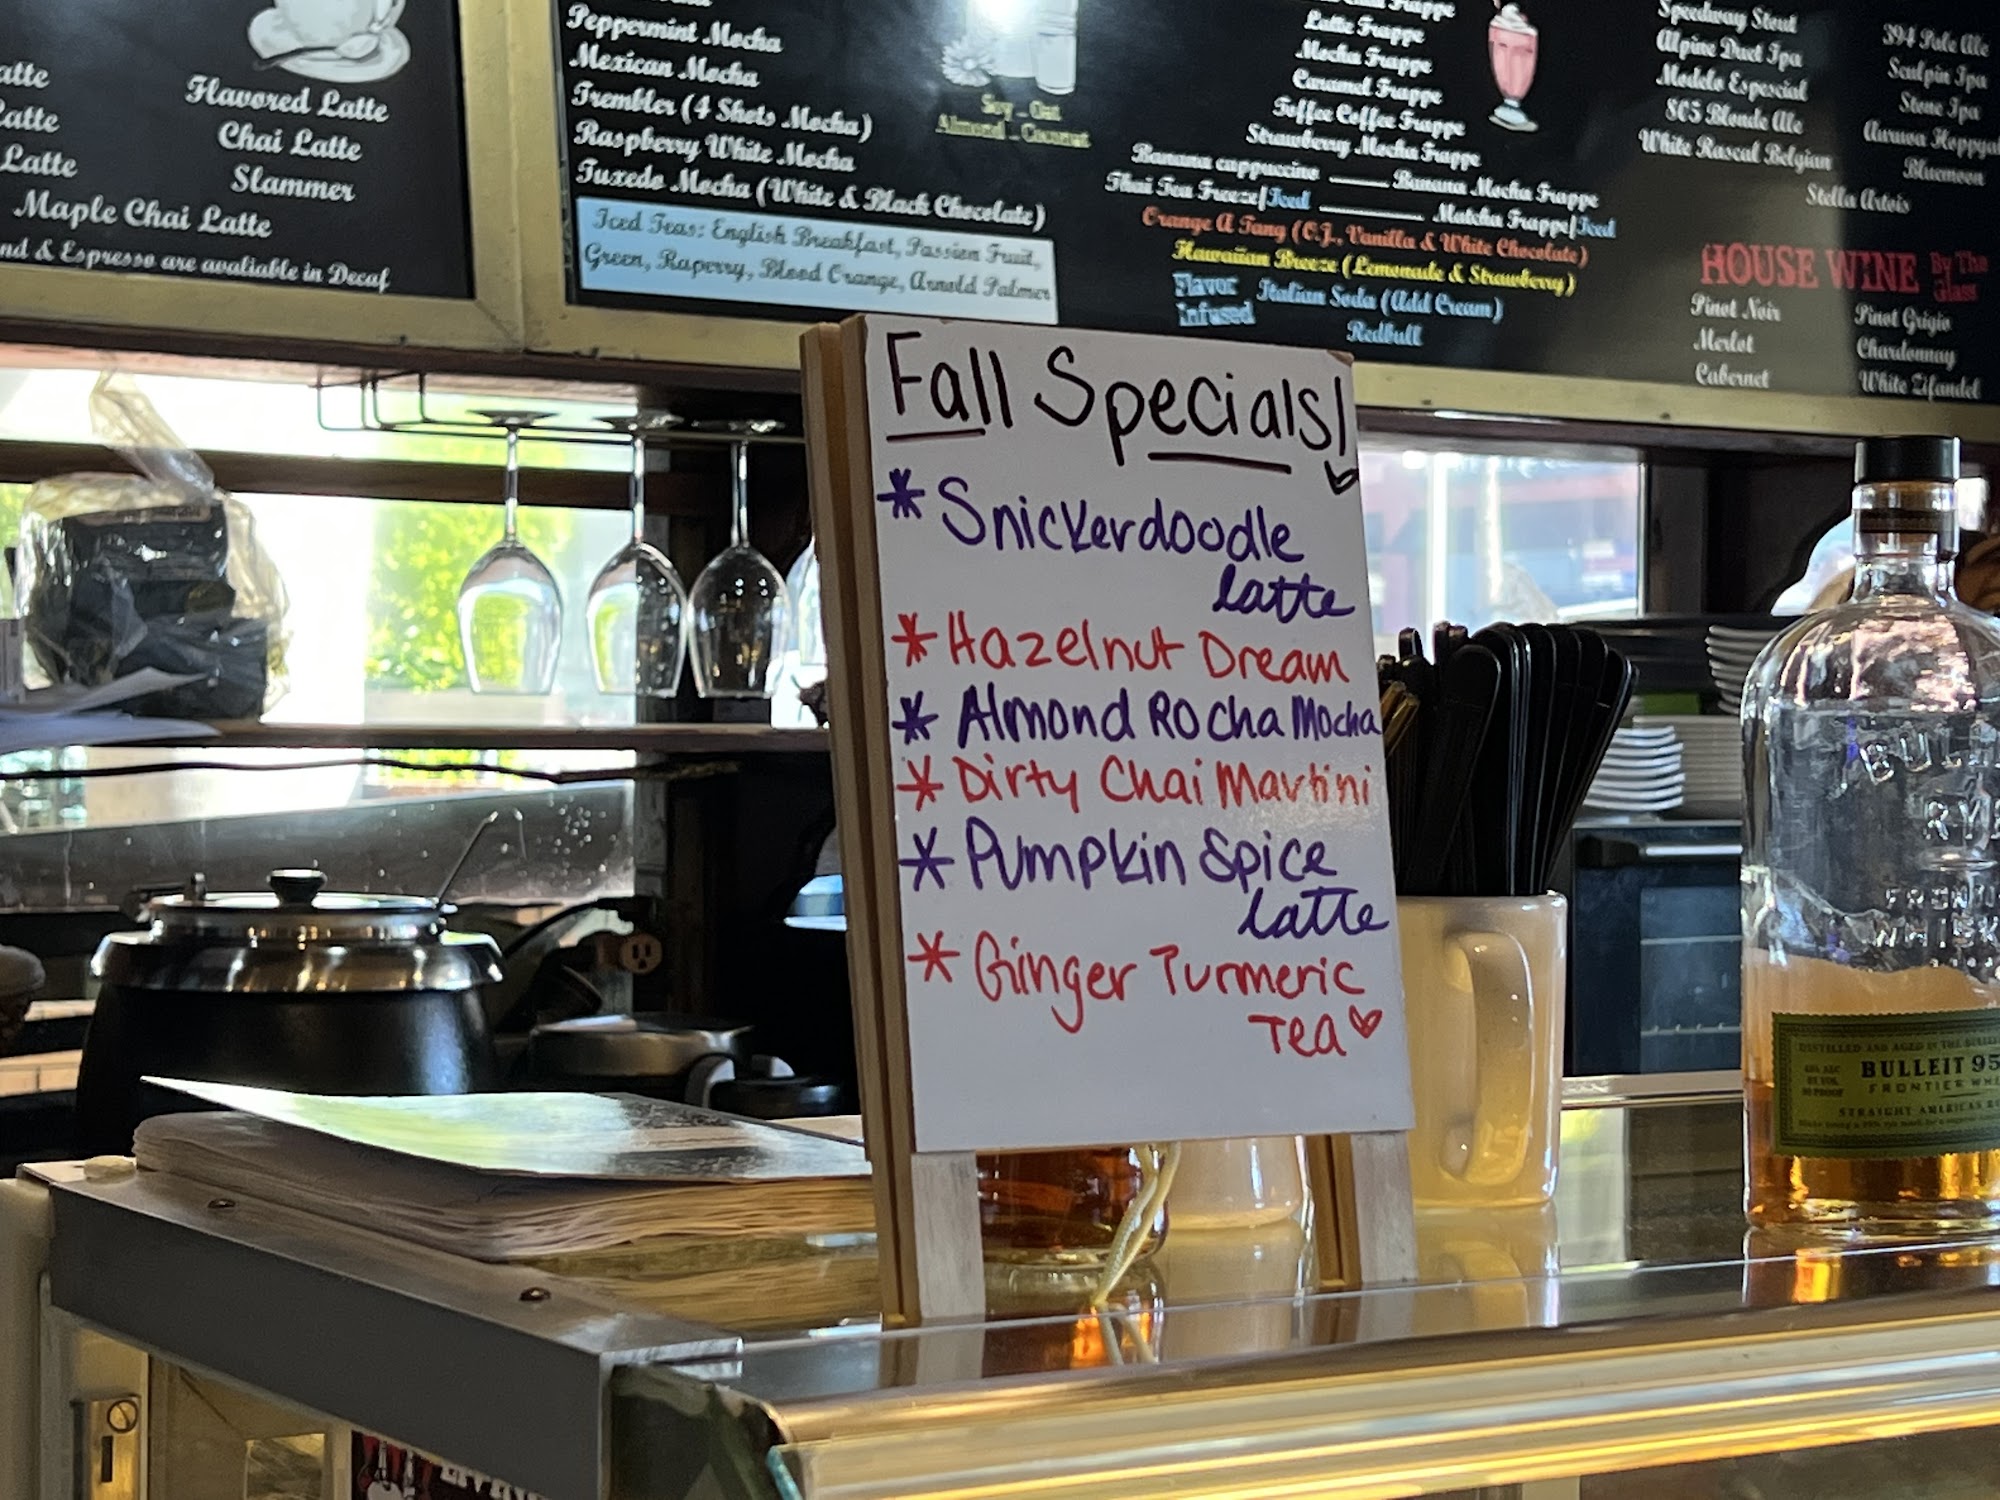 Latte
Latte
Flavored Latte
Chai Latte
Slammer
Maple Chai Latte
& Espresso are avaliable in Decaf
Peppermint Mocha
Mexican Mocha
Trembler (4 Shots Mocha)
Raspberry White Mocha
Tuxedo Mocha (White & Black Chocolate)
Iced Teas: English Breakfast, Passion Fruit,
Green, Raperry, Blood Orange, Arnold Palmer
Soy - Oat
Almond - Coconut
Frappe
Latte Frappe
Mocha Frappe
Caramel Frappe
Toffee Coffee Frappe
Strawberry Mocha Frappe
Banana cappuccino Banana Mocha Frappe
Thai Tea Freeze/Iced Matcha Frappe/Iced
Orange A Tang (O.J., Vanilla & White Chocolate)
Hawaiian Breeze (Lemonade & Strawberry)
Flavor Infused Italian Soda (Add Cream)
Redbull
Speedway Stout
Alpine Duet Ipa
Modelo Espescial
805 Blonde Ale
White Rascal Belgian
394 Pale Ale
Sculpin Ipa
Stone Ipa
Bluemoon
Stella Artois
HOUSE WINE By The Glass
Pinot Noir
Merlot
Cabernet
Pinot Grigio
Chardonnay
White Zifandel
Fall Specials!
* Snickerdoodle
Latte
* Hazelnut Dream
* Almond Rocha Mocha
* Dirty Chai Martini
* Pumpkin Spice
Latte
* Ginger Turmeric
Tea
BULLEIT 95
FRONTIER
STRAIGHT AMERICAN